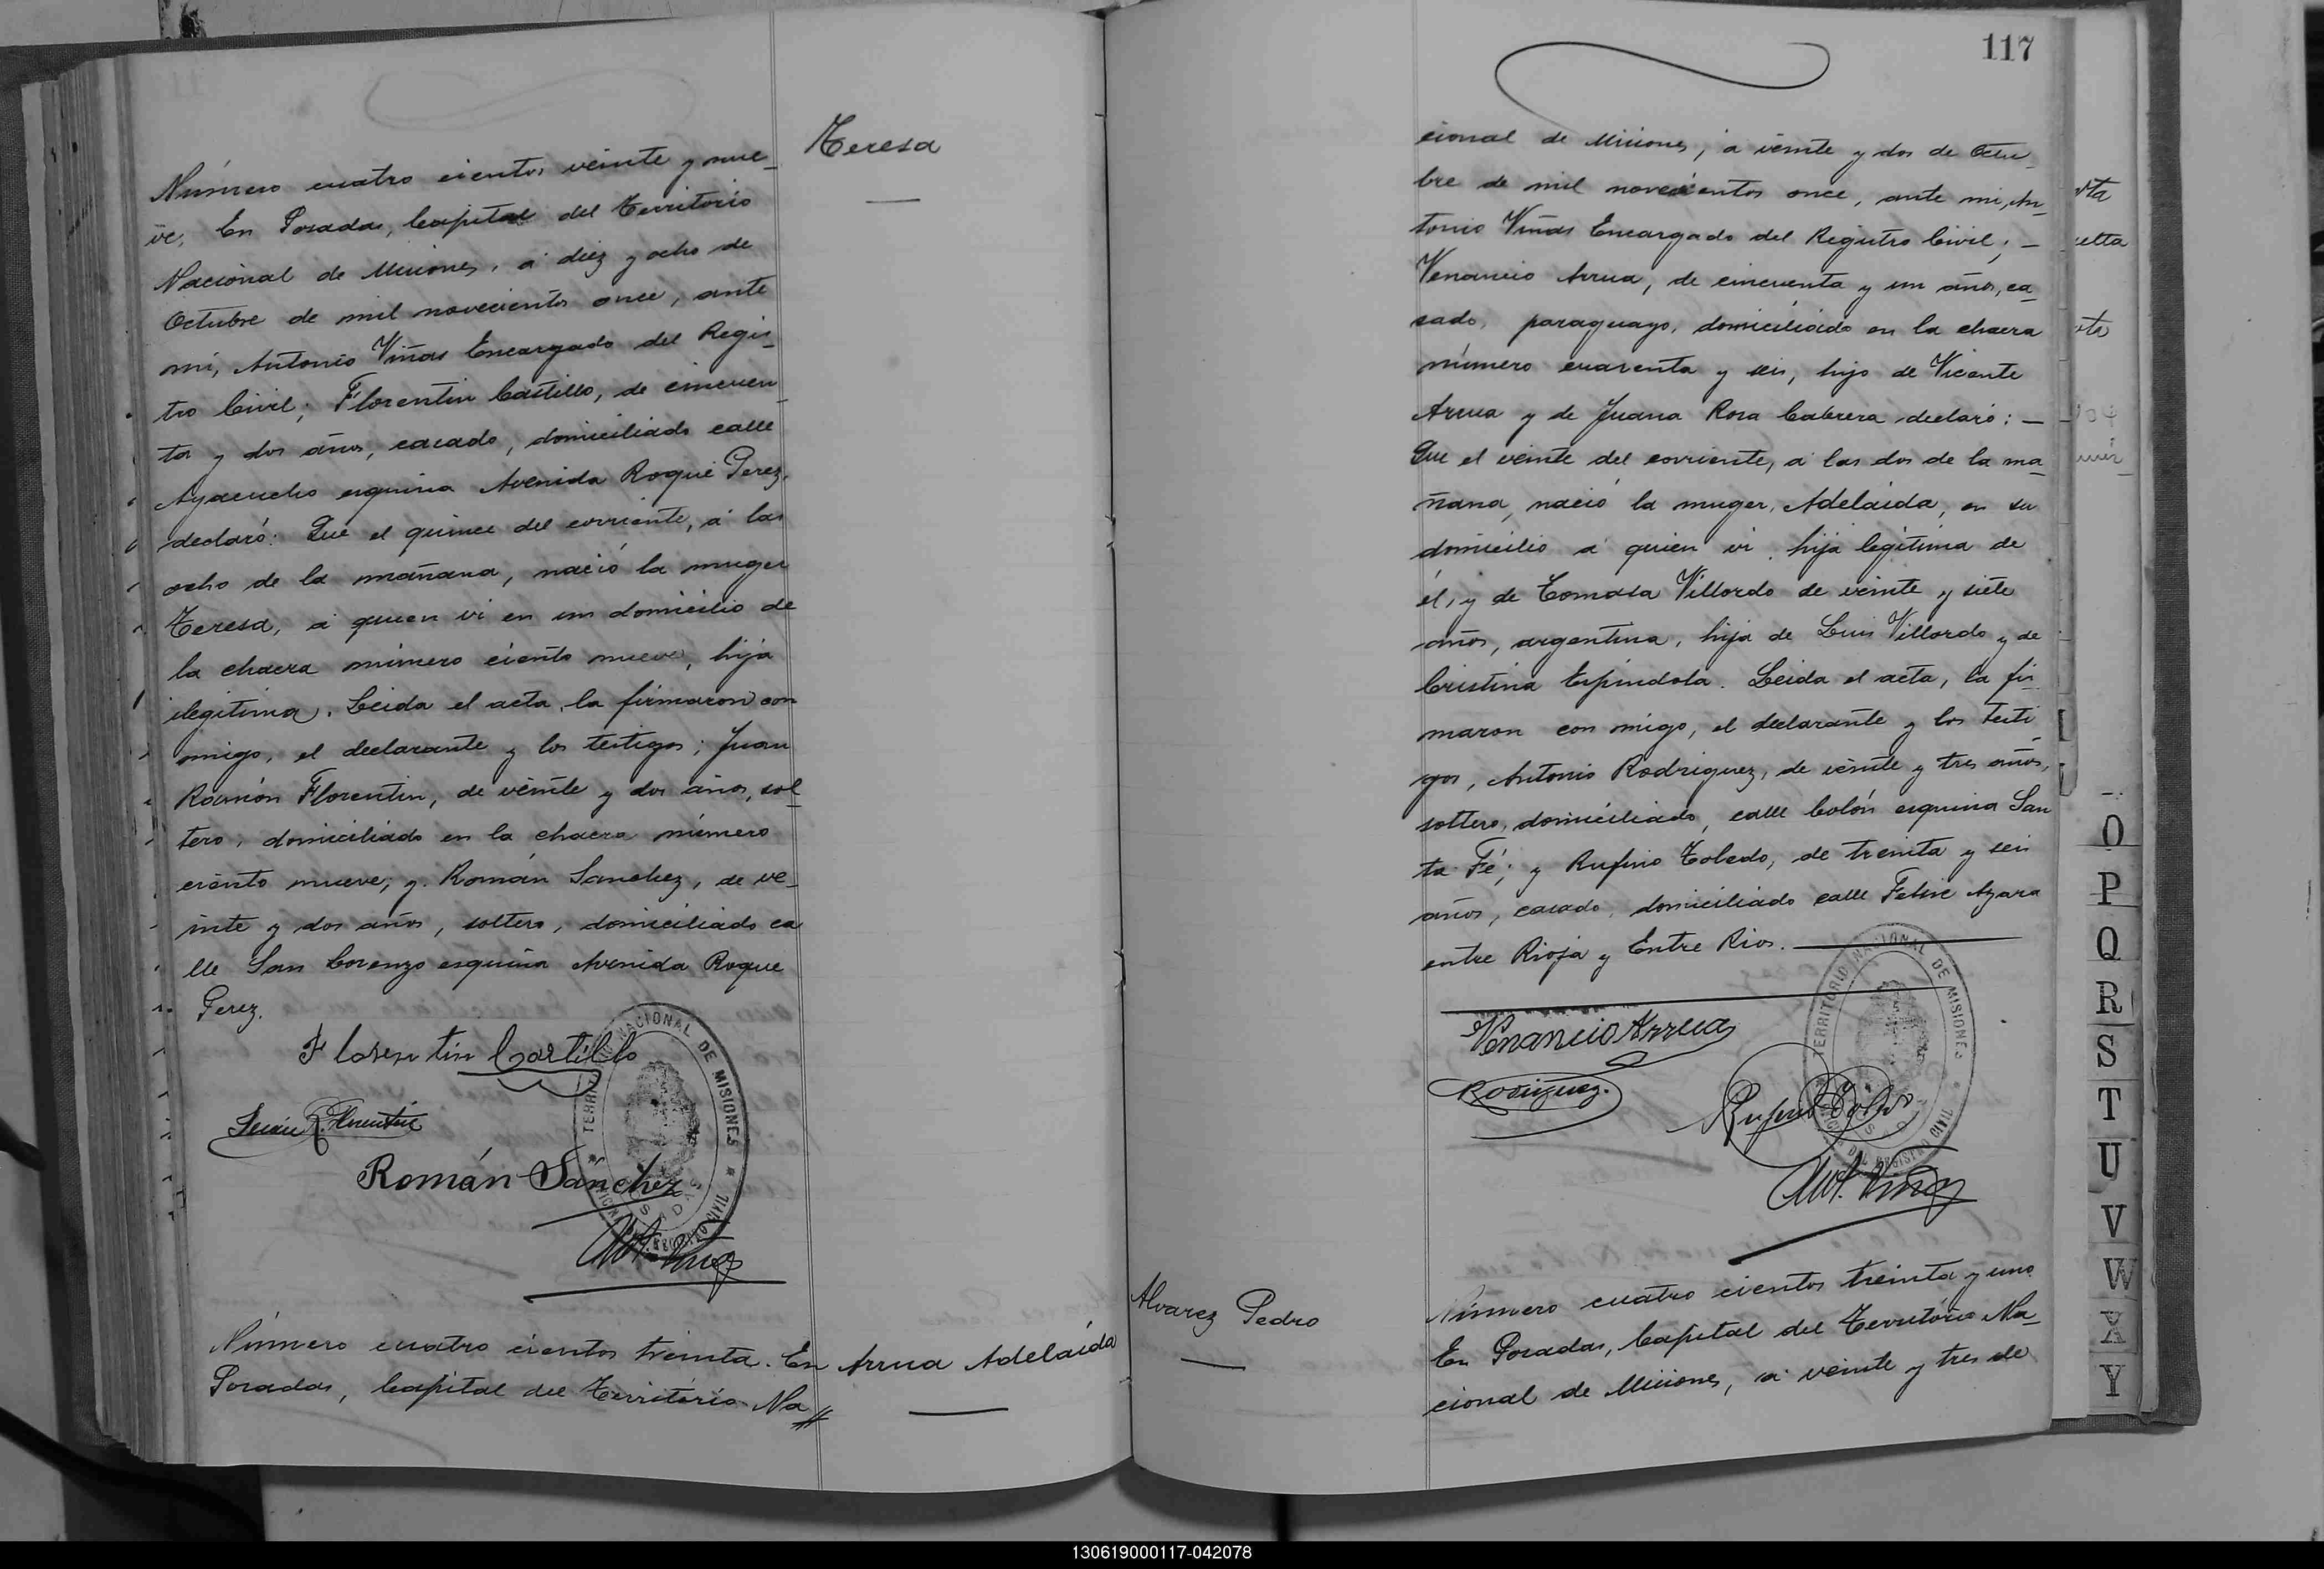 Teresa
Número cuatro cientos veinte y nue_
ve. En Posadas, Capital del Territorio
Nacional de Misiones, á diez y ocho de
Octubre de mil novecientos once, ante
mi, Antonio Viñas Encargado del Regis_
tro Civil; Florentin Castillo, de cincuen_
ta y dos años, casado, domiciliado calle
Ayacucho esquina Avenida Roque Perez,
declaró: Que el quince del corriente, á las
ocho de la mañana, nació la muger
Teresa, á quien vi en un domicilio de
la chacra número ciento nueve, hija
ilegitima. Leida el acta, la firmaron con
migo, el declarante y los testigos; Juan
Ramón Florentin, de veinte y dos años, sol_
tero, domiciliado en la chacra número
ciento nueve; y Román Sanchez, de ve_
inte y dos años, soltero, domiciliado ca
lle San Lorenzo esquina Avenida Roque
Perez.
Florentin Castillo
Juan R. Florentin
Román Sánchez
Ant. Viñas
TERRITORIO NACIONAL DE MISIONES
Número cuatro cientos treinta. En
Arrua Adelaida
Posadas, Capital del Territorio Na
117
cional de Misiones, á veinte y dos de Octu_
bre de mil novecientos once, ante mi, An_
tonio Viñas Encargado del Registro Civil; _
Venancio Arrua, de cincuenta y un años, ca_
sado, paraguayo, domiciliado en la chacra
número cuarenta y seis, hijo de Vicente
Arrua y de Juana Rosa Cabrera declaró: _
Que el veinte del corriente, á las dos de la ma_
ñana, nació la muger, Adelaida, en su
domicilio á quien vi, hija legitima de
él, y de Tomasa Villordo de veinte y siete
años, argentina, hija de Luis Villordo y de
Cristina Espindola. Leida el acta, la fir_
maron con migo, el declarante y los testi_
gos, Antonio Rodriguez, de veinte y tres años,
soltero, domiciliado, calle Colón esquina San
ta Fé; y Rufino Toledo, de treinta y seis
años, casado, domiciliado calle Felix Azara
entre Rioja y Entre Rios.
Venancio Arrua
Rodriguez.
Rufino Toledo
Ant. Viñas
TERRITORIO NACIONAL DE MISIONES
Alvarez Pedro
Número cuatro cientos treinta y uno
En Posadas, Capital del Territorio Na_
cional de Misiones, á veinte y tres de
O
P
Q
R
S
T
U
V
W
X
Y
130619000117-042078